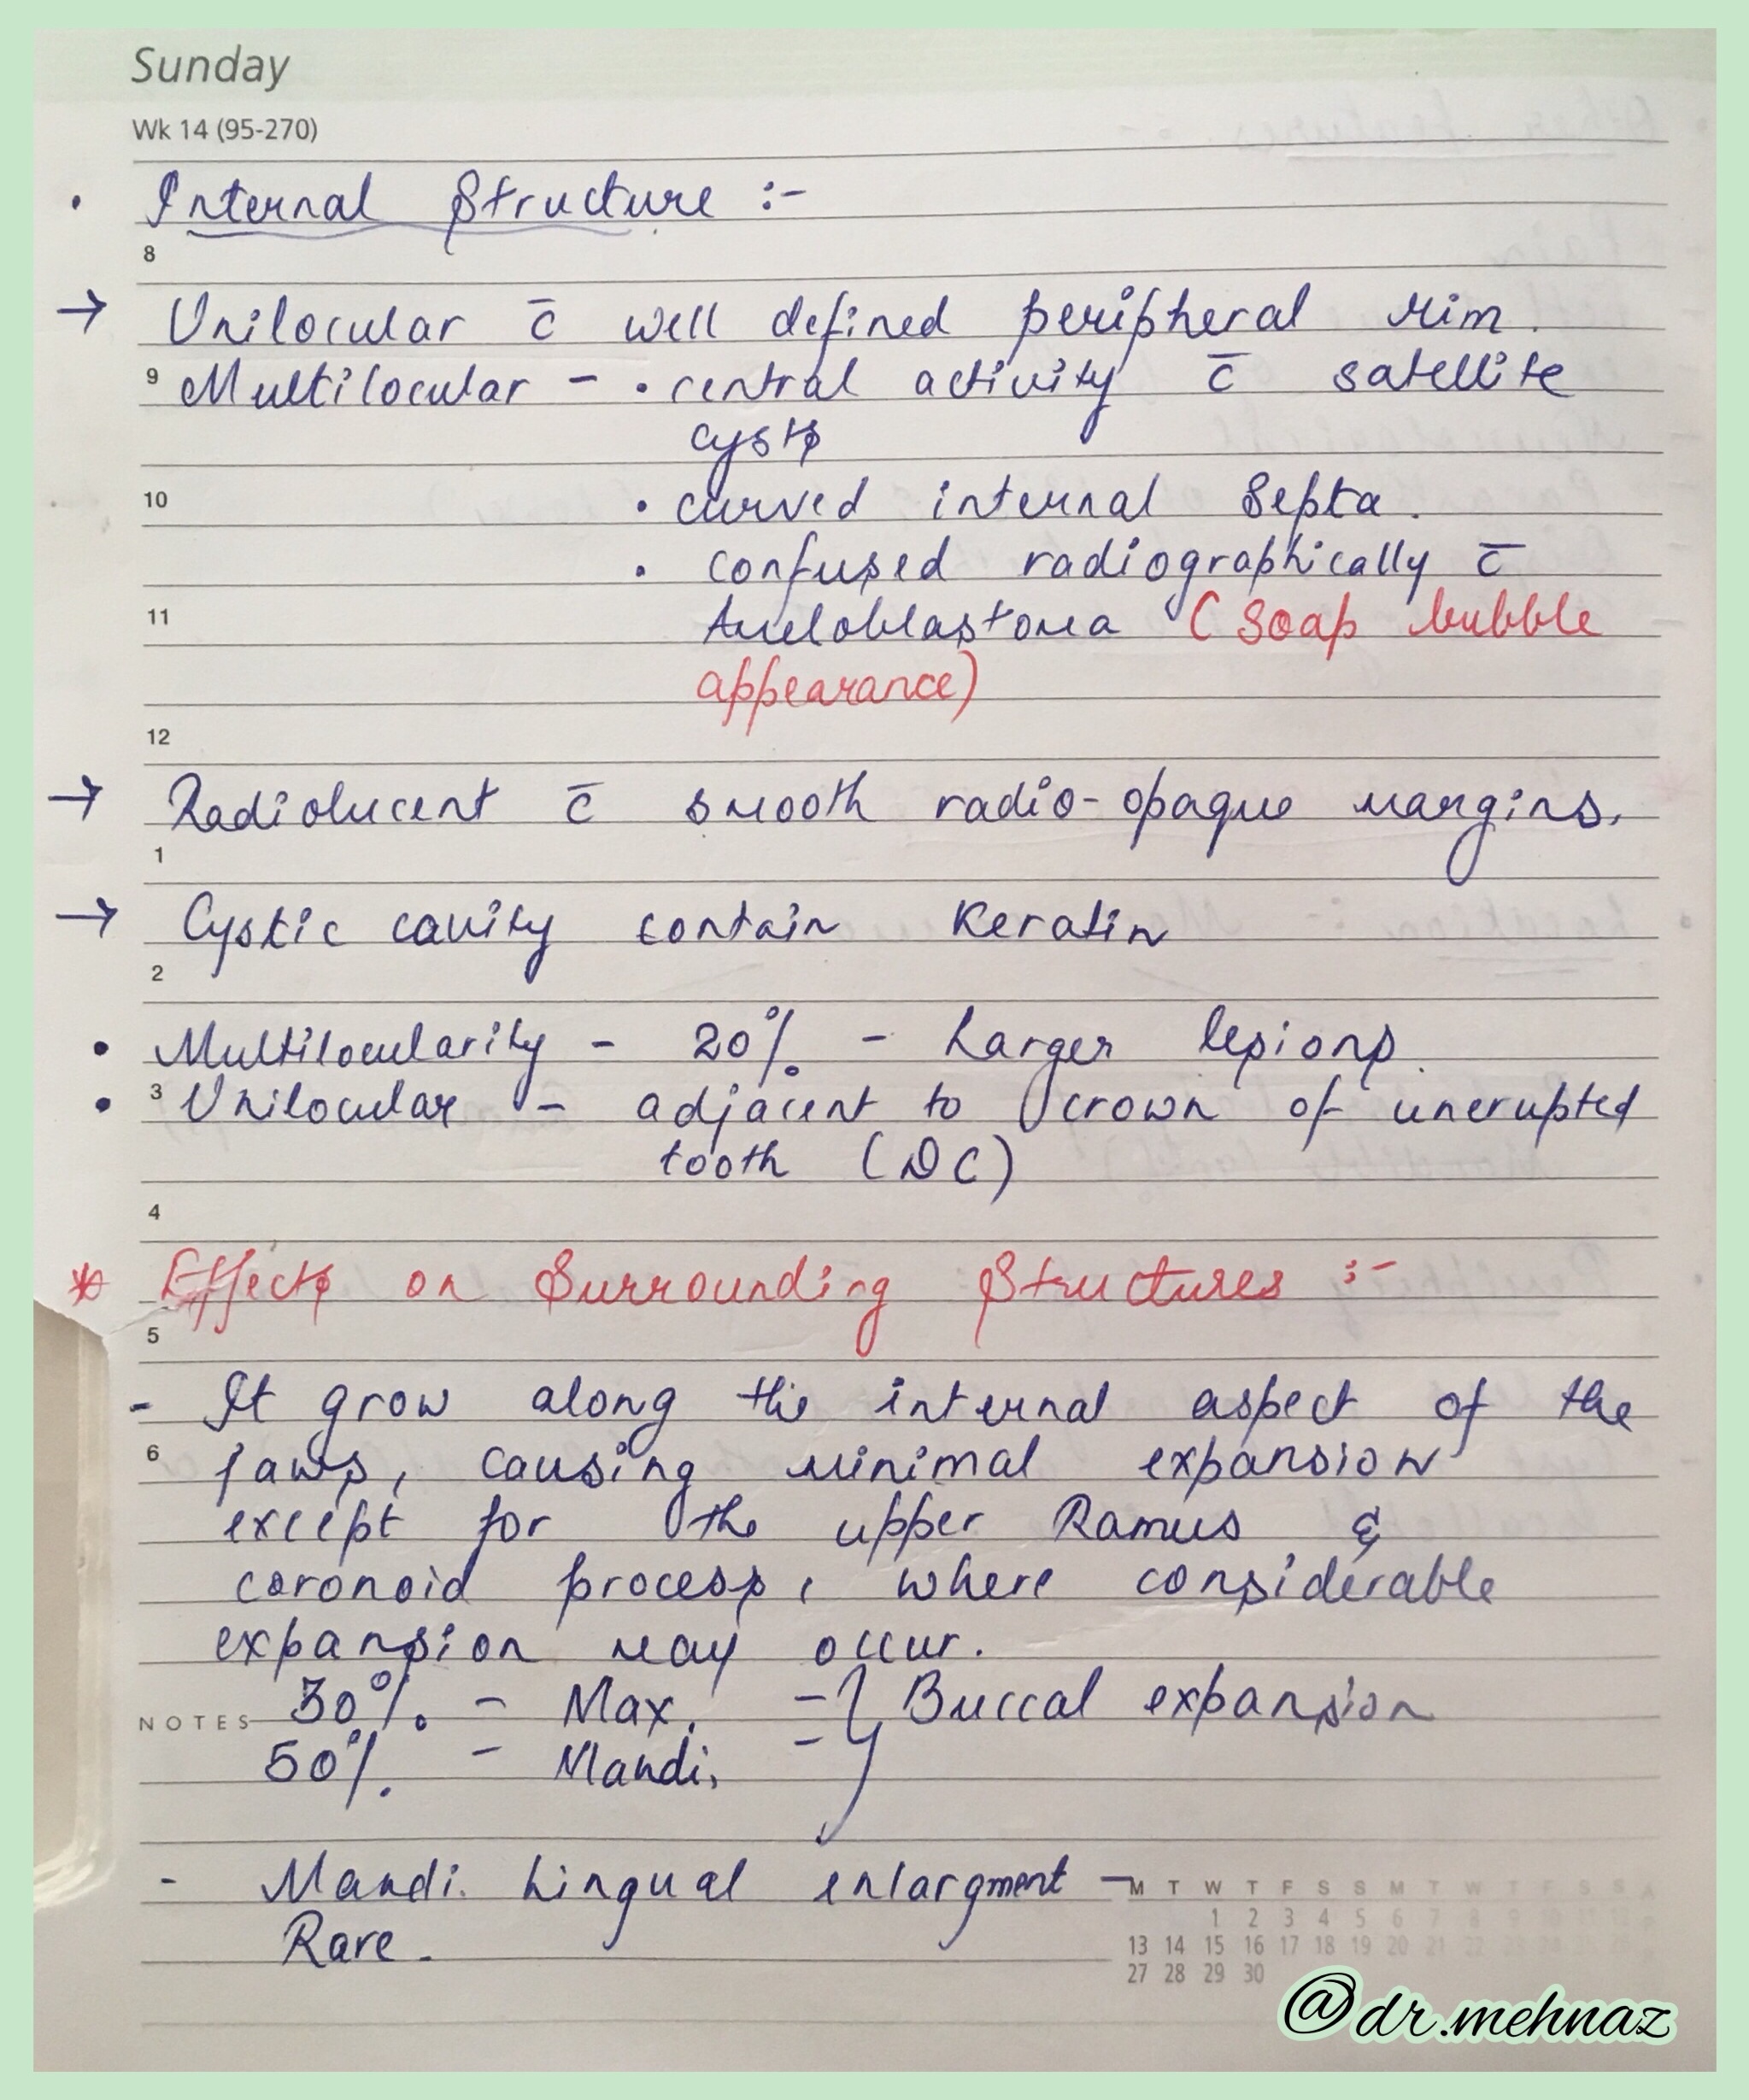 Sunday
Wk 14 (95-270)
• Internal Structure :-
8
→ Unilocular c̄ well defined peripheral rim.
9 Multilocular - • central activity c̄ satellite
cysts
10 • curved internal septa.
• confused radiographically c̄
11 Ameloblastoma (Soap bubble
appearance)
12
→ Radiolucent c̄ smooth radio-opaque margins.
1
→ Cystic cavity contain Keratin
2
• Multilocularity - 20% - Larger lesions.
• 3 Unilocular - adjacent to crown of unerupted
tooth (DC)
4
* Effects on Surrounding Structures :-
5
- It grow along the internal aspect of the
6 jaws, causing minimal expansion
except for the upper Ramus &
coronoid process, where considerable
expansion may occur.
NOTES 30% - Max. - } Buccal expansion
50% - Mandi. -
- Mandi. Lingual enlargment -
Rare.
M T W T F S S M T W T F S S
1 2 3 4 5 6 7 8 9 10 11 12
13 14 15 16 17 18 19 20 21 22 23 24
27 28 29 30
@dr.mehnaz